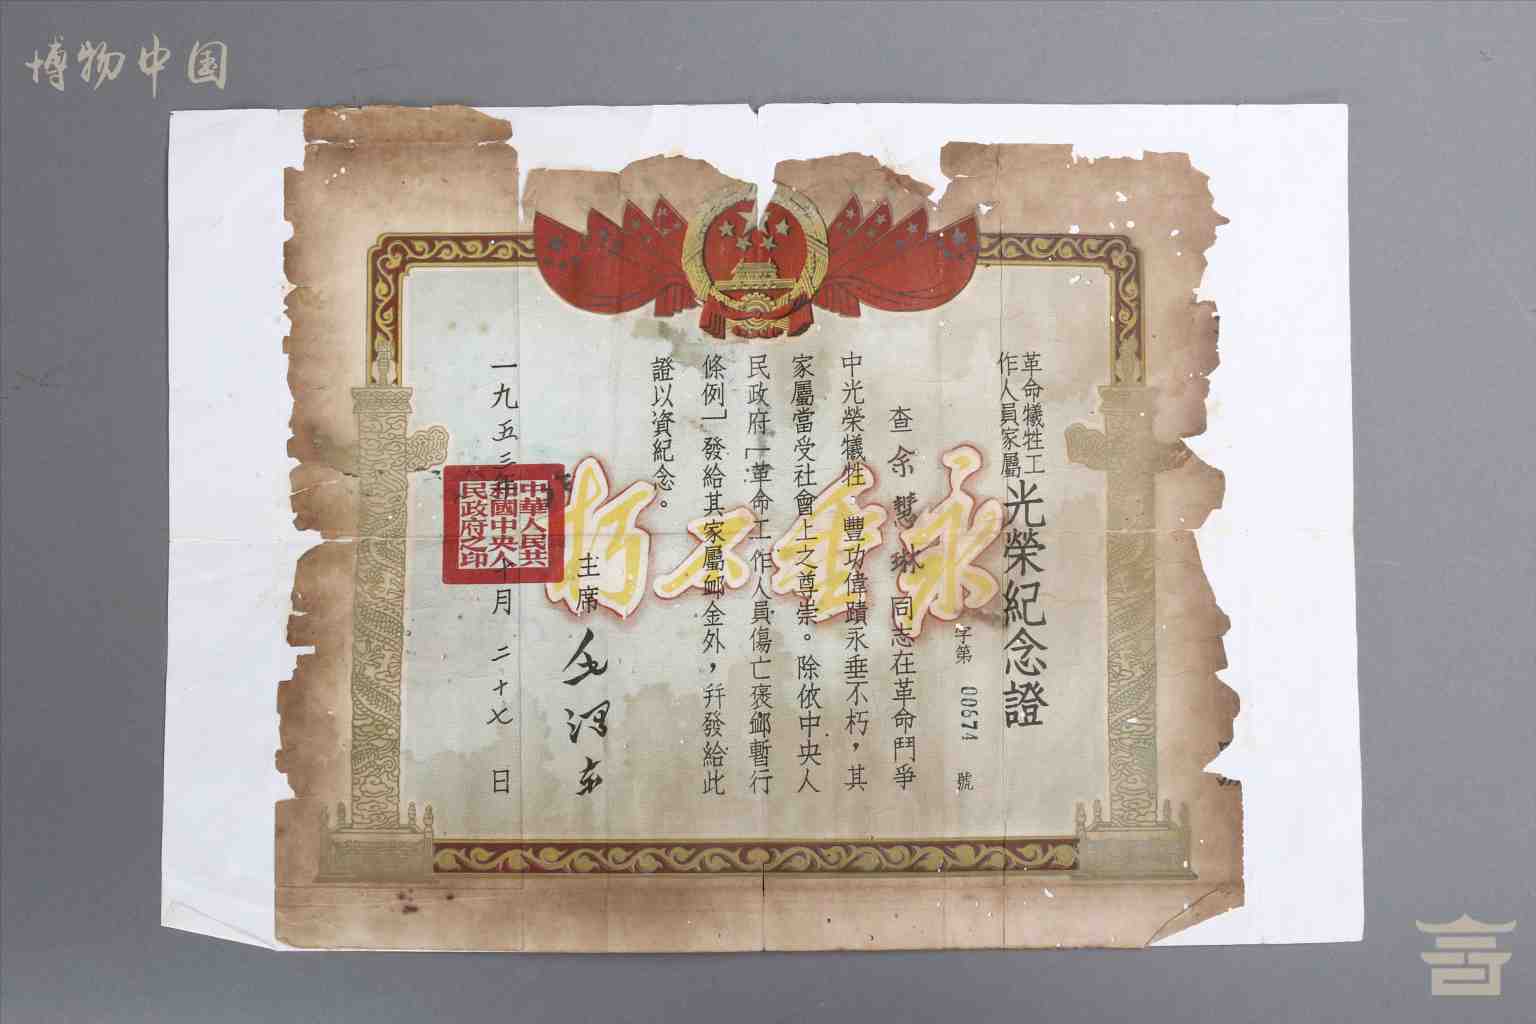 博物中国
革命犧牲工
作人員家屬
光榮紀念證
字第 00674 號
查余慧琳同志在革命鬥爭
中光榮犧牲，豐功偉蹟永垂不朽，其
家屬當受社會上之尊崇。除依中央人
民政府「革命工作人員傷亡褒卹暫行
條例」發給其家屬卹金外，幷發給此
證以資紀念。
主席 毛澤東
一九五三年十月二十七日
永垂不朽
中華人民共
和國中央人
民政府之印